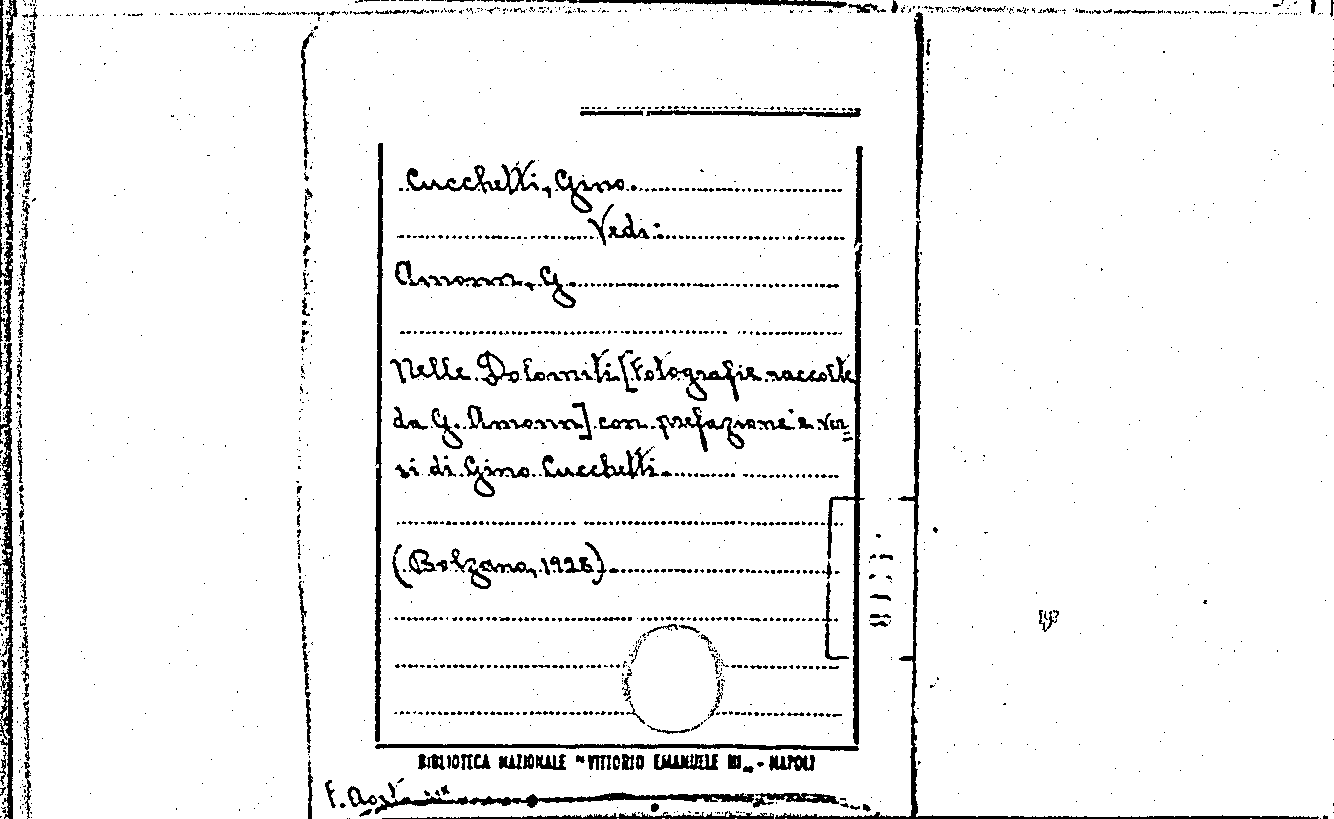 Cucchetti, Gino.
Vedi:
Amonn, G.
Nelle Dolomiti [Fotografie raccolte
da G. Amonn] con prefazione e ver=
si di Gino Cucchetti.
(Bolzano, 1928).
BIBLIOTECA NAZIONALE "VITTORIO EMANUELE III„ - NAPOLI